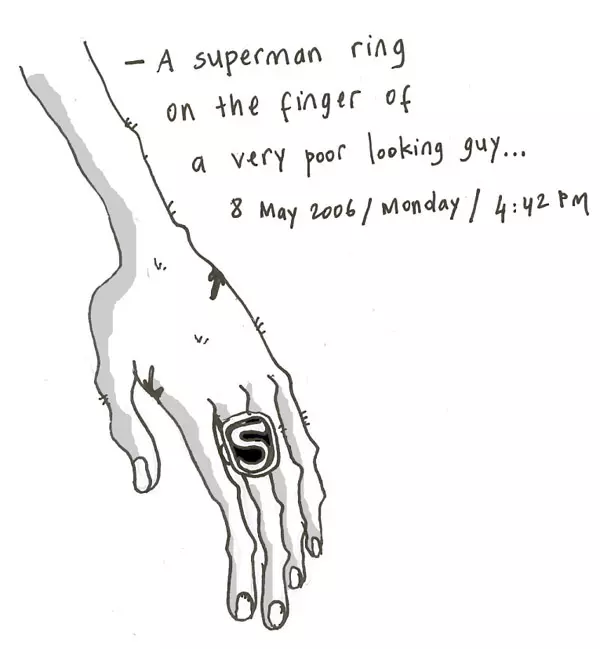 – A superman ring
on the finger of
a very poor looking guy...
8 May 2006 / Monday / 4:42 PM
S